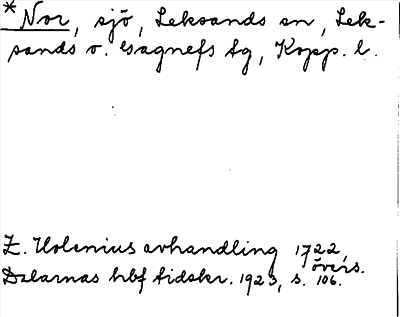 *Nor, sjö, Leksands sn, Lek-
sands o. Gagnefs tg, Kopp. l.
E. Holenius avhandling 1722,
övers.
Dalarnas hbf tidskr. 1923, s. 106.